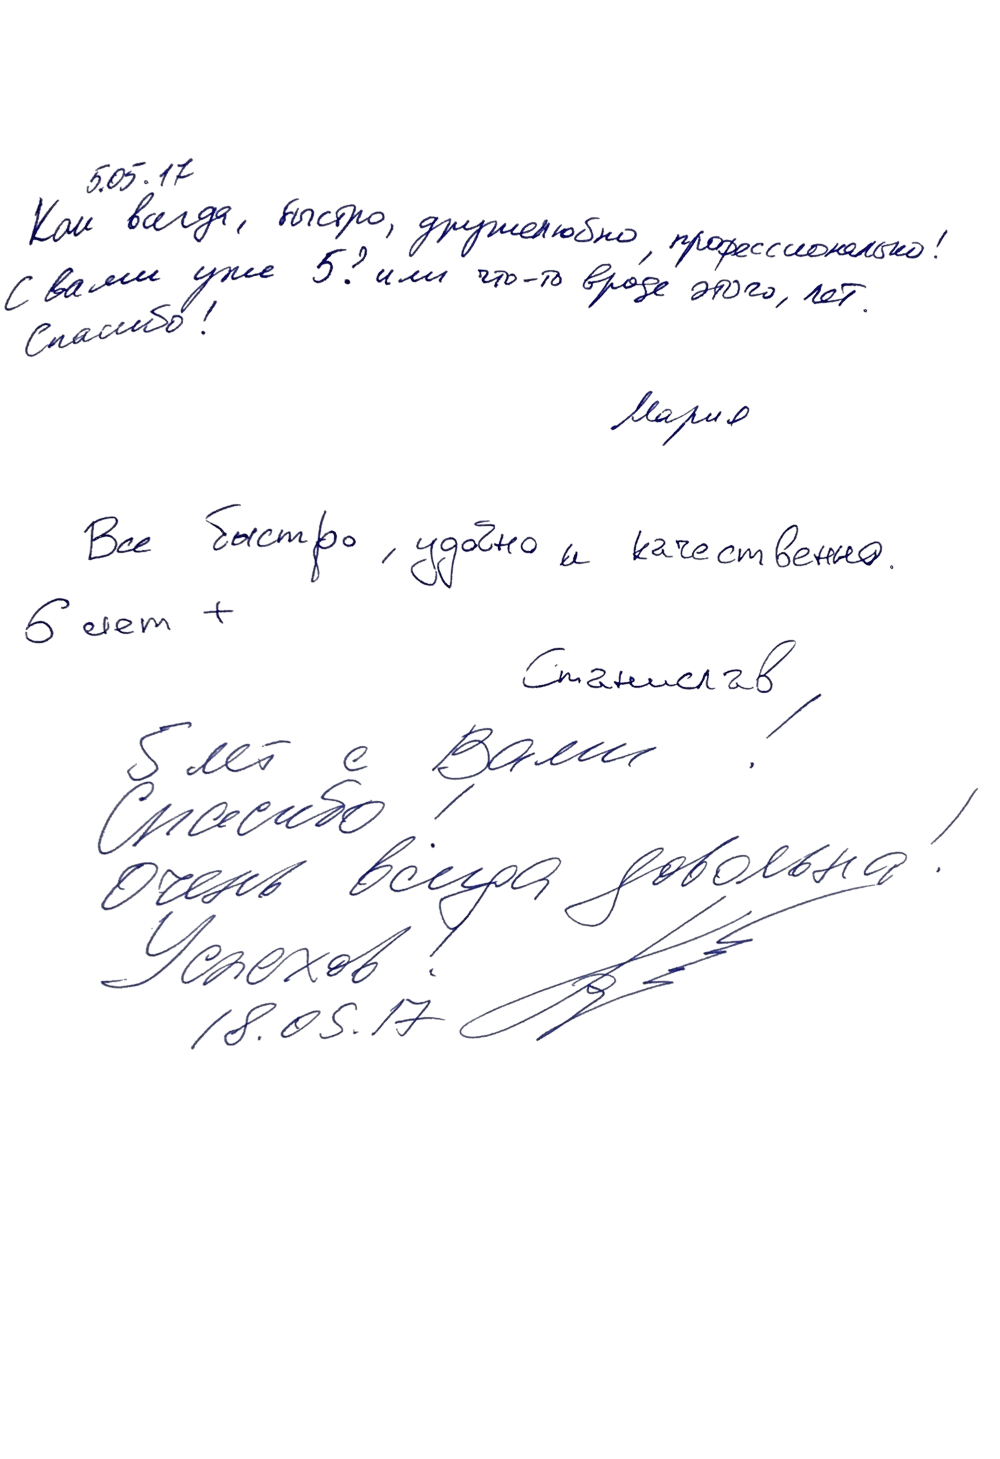 5.05.17
Как всегда, быстро, дружелюбно, профессионально!
С вами уже 5? или что-то вроде этого, лет.
Спасибо!
Мария
Все быстро, удобно и качественно.
6 лет +
Станислав
5 лет с Вами!
Спасибо!
Очень всегда довольна!
Успехов!
18.05.17